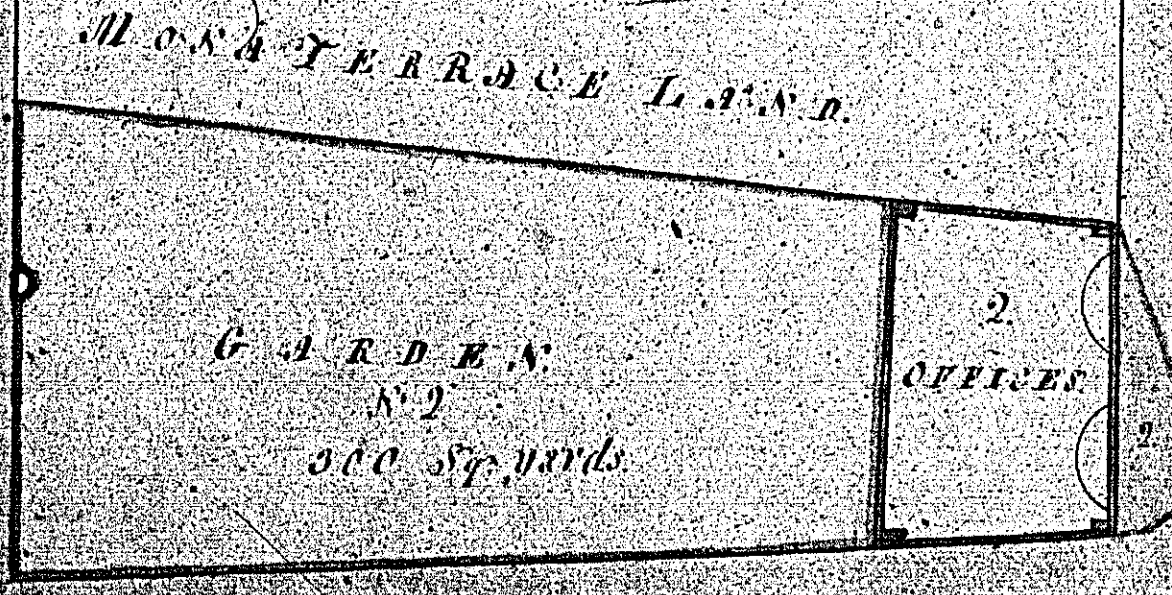 MONA TERRACE LAND.
GARDEN.
Nº 2
300 Sq. yards
2.
OFFICES.
2